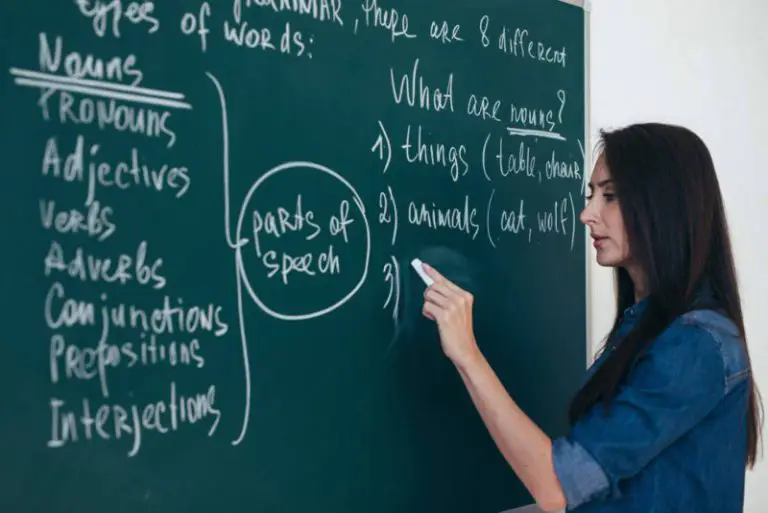 GRAMMAR, there are 8 different
types of words:
Nouns
PRONOUNS
Adjectives
Verbs
Adverbs
Conjunctions
Prepositions
Interjections
parts of
speech
What are nouns?
1) things (table, chair)
2) animals (cat, wolf)
3)